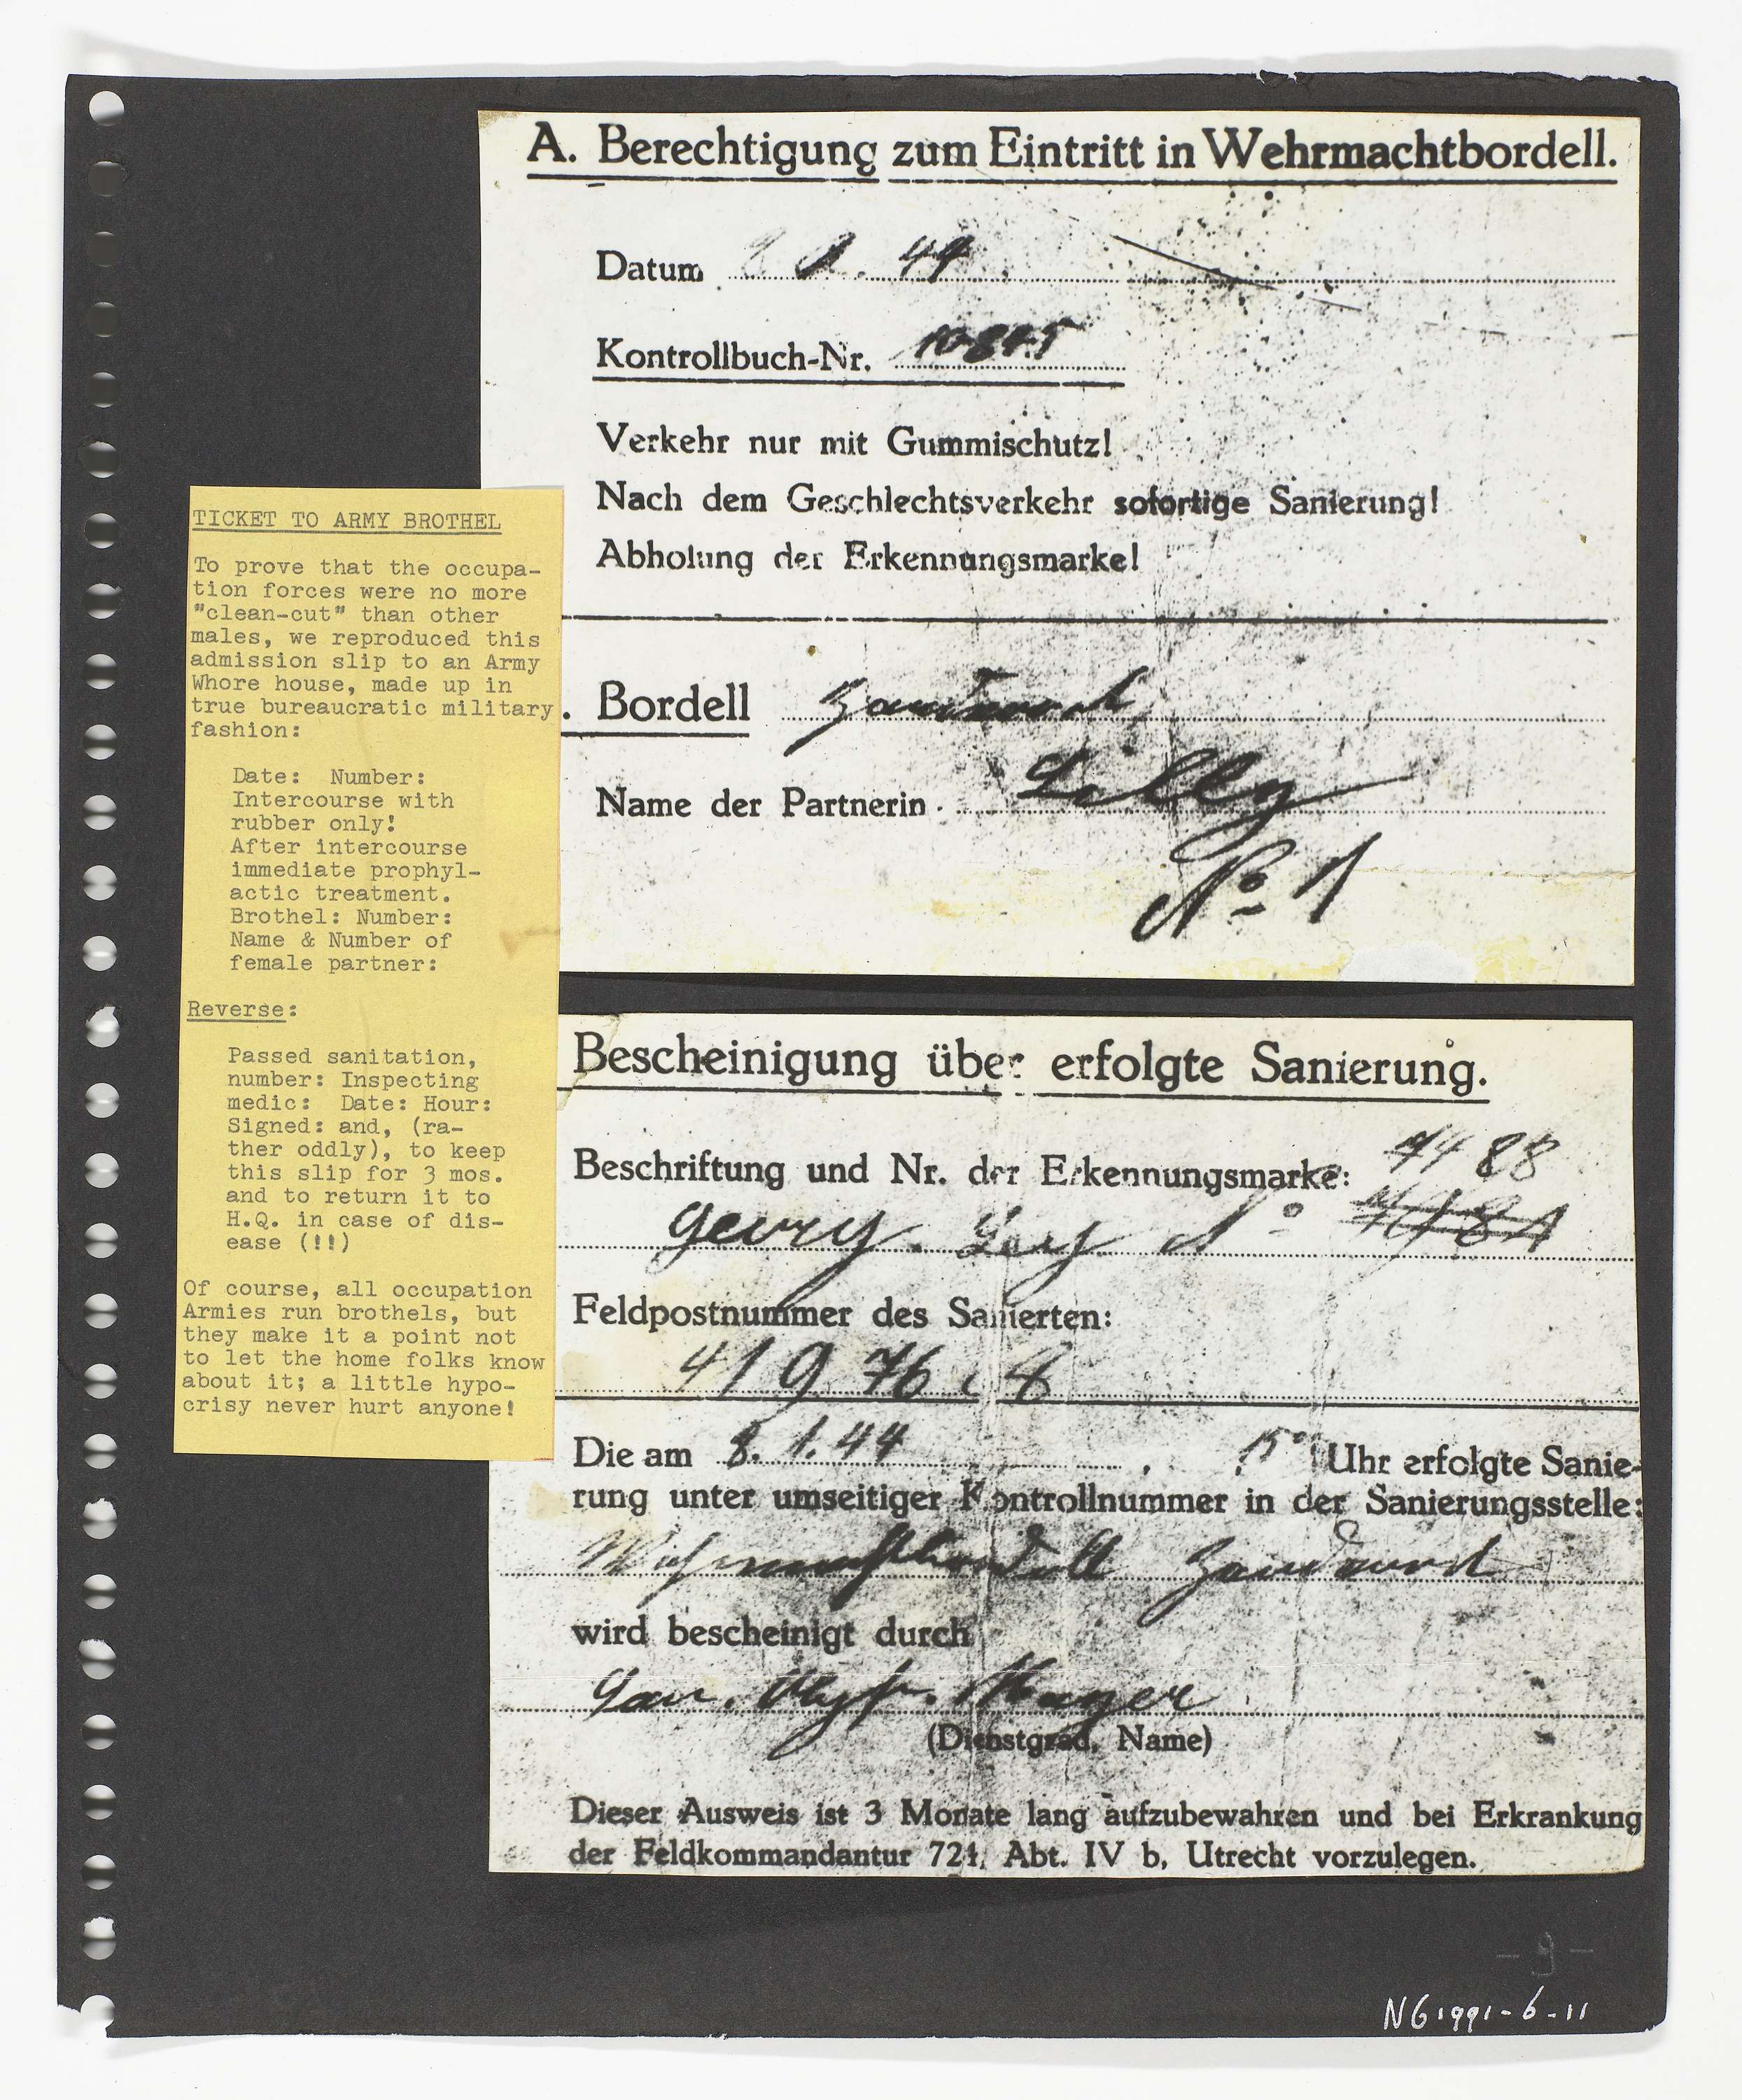 A. Berechtigung zum Eintritt in Wehrmachtbordell.
Datum 44
Kontrollbuch-Nr.
Verkehr nur mit Gummischutz!
Nach dem Geschlechtsverkehr sofortige Sanierung!
Abholung der Erkennungsmarke!
. Bordell
Name der Partnerin Lilly
No 1
TICKET TO ARMY BROTHEL
To prove that the occupa-
tion forces were no more
"clean-cut" than other
males, we reproduced this
admission slip to an Army
Whore house, made up in
true bureaucratic military
fashion:
Date: Number:
Intercourse with
rubber only!
After intercourse
immediate prophyl-
actic treatment.
Brothel: Number:
Name & Number of
female partner:
Reverse:
Passed sanitation,
number: Inspecting
medic: Date: Hour:
Signed: and, (ra-
ther oddly), to keep
this slip for 3 mos.
and to return it to
H.Q. in case of dis-
ease (!!)
Of course, all occupation
Armies run brothels, but
they make it a point not
to let the home folks know
about it; a little hypo-
crisy never hurt anyone!
Bescheinigung über erfolgte Sanierung.
Beschriftung und Nr. der Erkennungsmarke: 7488
Georg
Feldpostnummer des Sanierten:
41976
Die am 8. 1. 44 , 15 Uhr erfolgte Sanie-
rung unter umseitiger Kontrollnummer in der Sanierungsstelle:
Wehrmachtbordell Zandvoort
wird bescheinigt durch
(Dienstgrad, Name)
Dieser Ausweis ist 3 Monate lang aufzubewahren und bei Erkrankung
der Feldkommandantur 724, Abt. IV b, Utrecht vorzulegen.
- 9 -
NG 1991-6-11